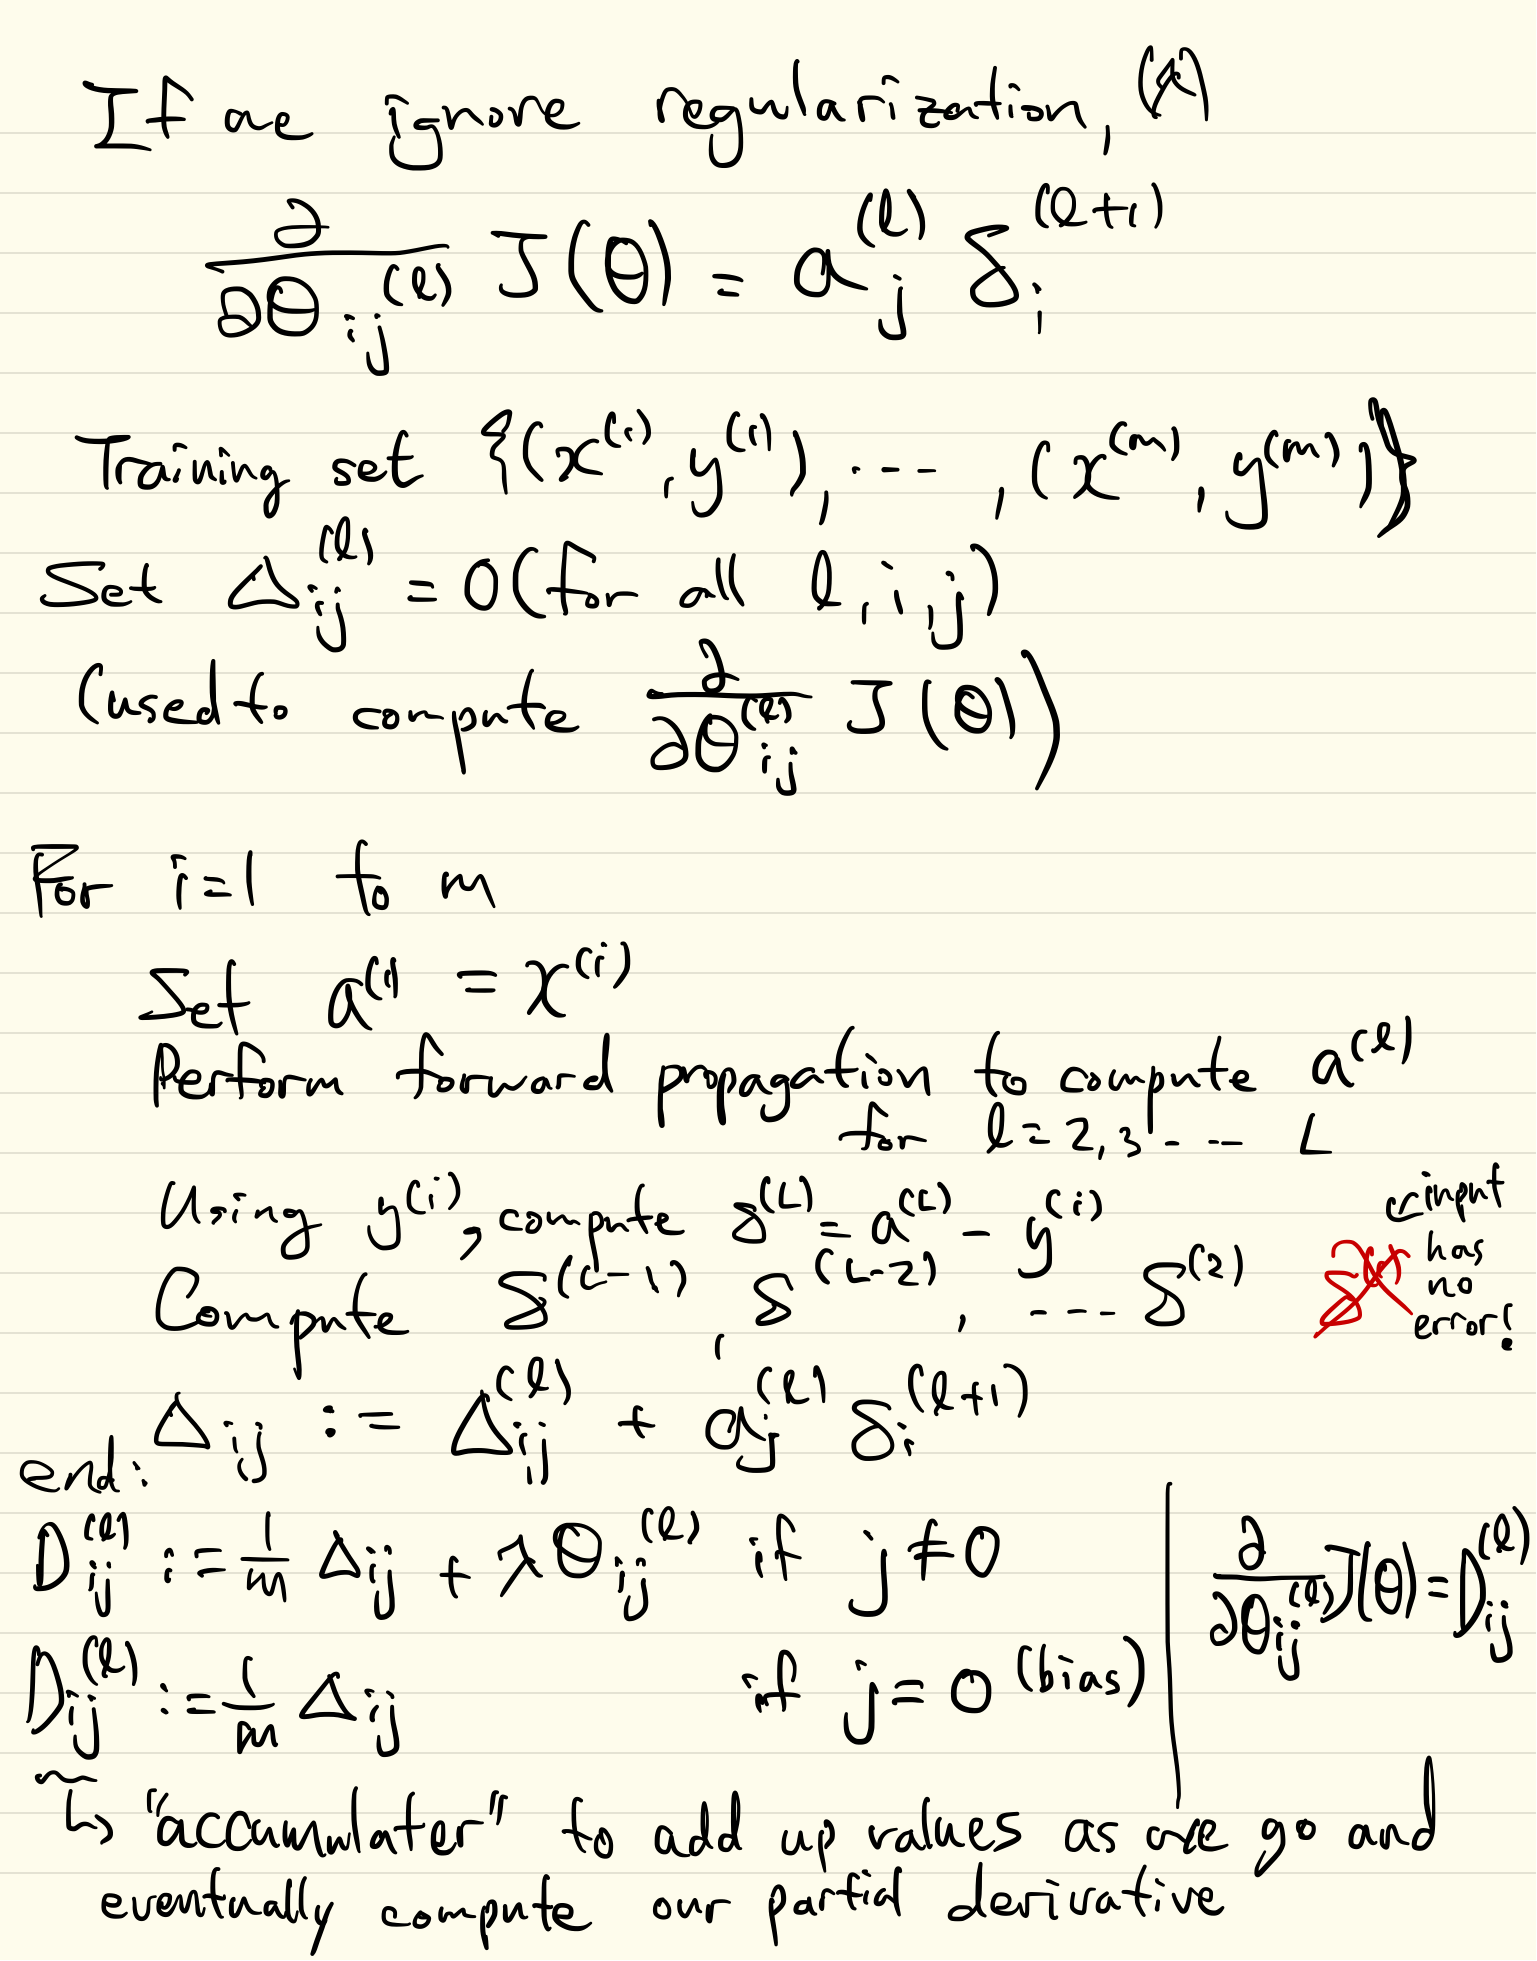 If we ignore regularization, (λ)
∂/∂Θ_ij^(l) J(Θ) = a_j^(l) δ_i^(l+1)
Training set {(x^(1), y^(1)), ---, (x^(m), y^(m))}
Set Δ_ij^(l) = 0 (for all l, i, j)
(used to compute ∂/∂Θ_ij^(l) J(Θ))
For i=1 to m
Set a^(1) = x^(i)
Perform forward propagation to compute a^(l)
for l = 2, 3 ---- L
Using y^(i), compute δ^(L) = a^(L) - y^(i)
Compute δ^(L-1), δ^(L-2), ---- δ^(2) δ^(1)
input
has
no
error!
Δ_ij := Δ_ij^(l) + a_j^(l) δ_i^(l+1)
end:
D_ij^(l) := 1/m Δ_ij + λΘ_ij^(l) if j ≠ 0
D_ij^(l) := 1/m Δ_ij if j = 0 (bias)
∂/∂Θ_ij^(l) J(Θ) = D_ij^(l)
↳ "accumulater" to add up values as we go and
eventually compute our partial derivative